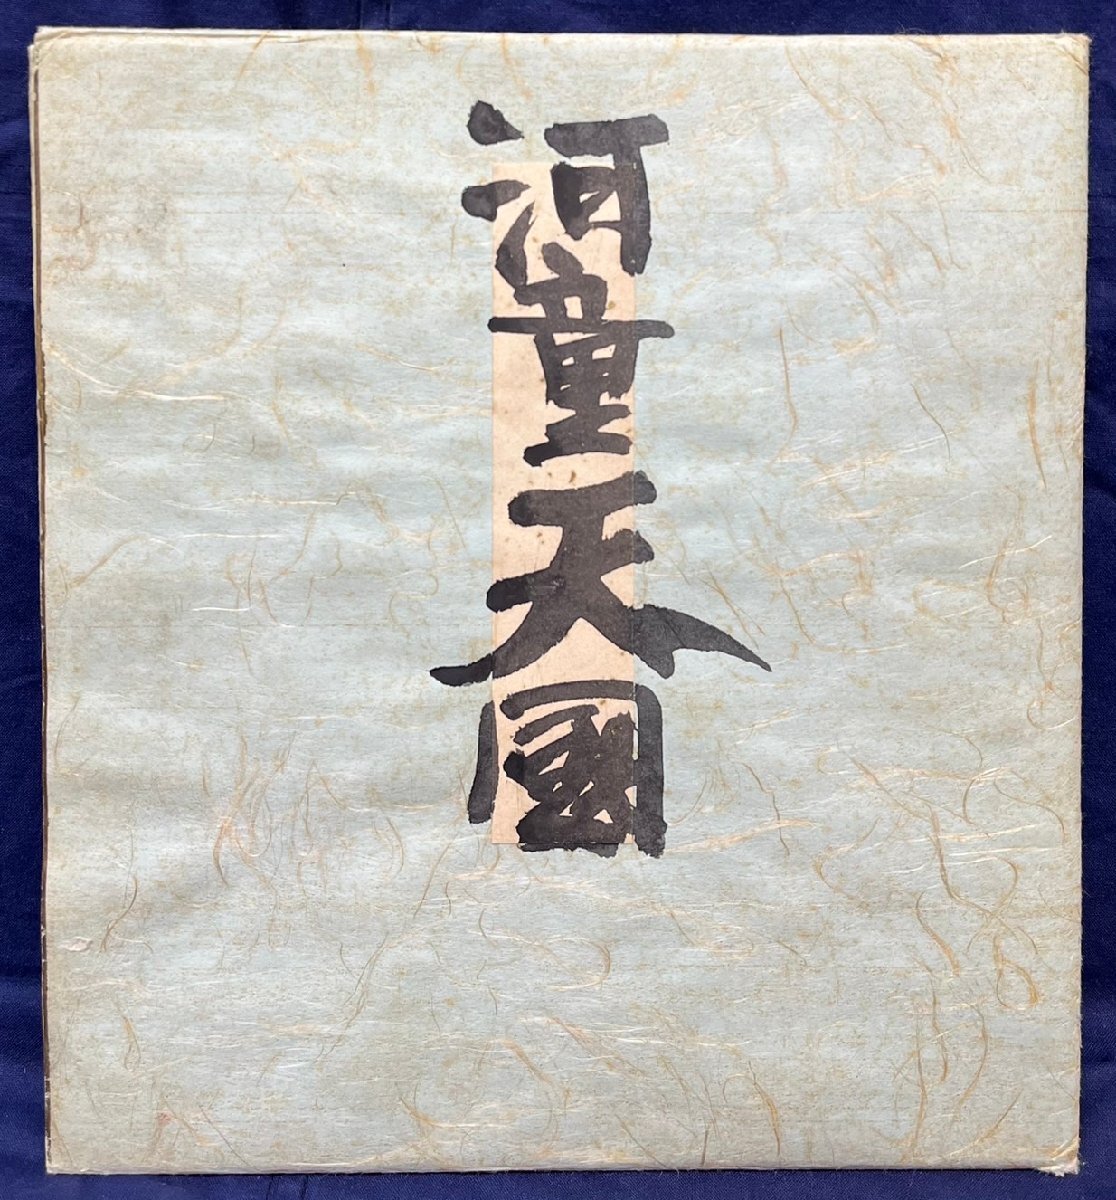 河童天國